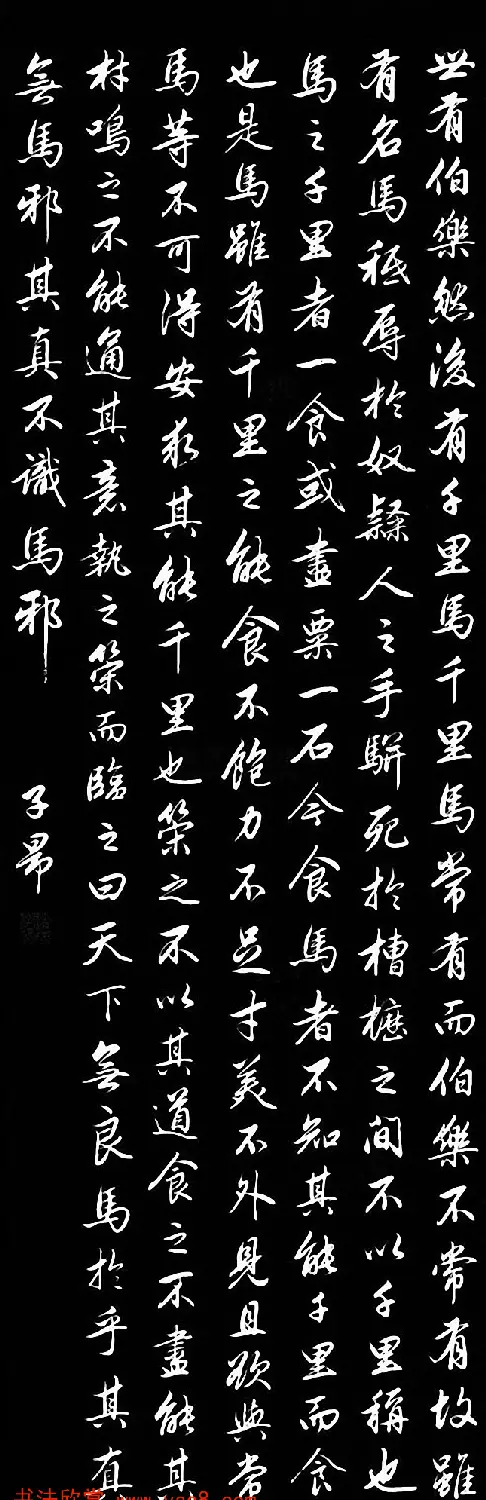 世有伯樂然後有千里馬千里馬常有而伯樂不常有故雖
有名馬秪辱於奴隸人之手駢死於槽櫪之間不以千里稱也
馬之千里者一食或盡粟一石今食馬者不知其能千里而食
也是馬雖有千里之能食不飽力不足才美不外見且欲與常
馬等不可得安求其能千里也策之不以其道食之不盡能其
材鳴之不能通其意執之策而臨之曰天下無良馬於乎其真
無馬邪其真不識馬邪
子昂
书法欣赏